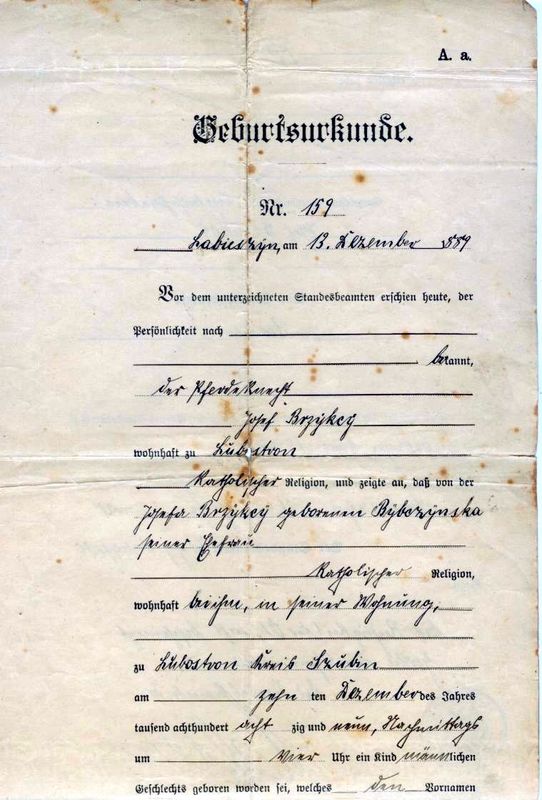 A. a.
Geburtsurkunde.
Nr. 159
Labischin, am 13. Dezember 1889
Vor dem unterzeichneten Standesbeamten erschien heute, der
Persönlichkeit nach
bekannt,
der Pferdeknecht
Josef Brzykcy
wohnhaft zu Lubostron
katholischer Religion, und zeigte an, daß von der
Josefa Brzykcy geborenen Rybczynska
seiner Ehefrau
katholischer Religion,
wohnhaft bei ihm, in seiner Wohnung,
zu Lubostron Kreis Szubin
am zehn ten Dezember des Jahres
tausend achthundert acht zig und neun, Nachmittags
um vier Uhr ein Kind männlichen
Geschlechts geboren worden sei, welches den Vornamen